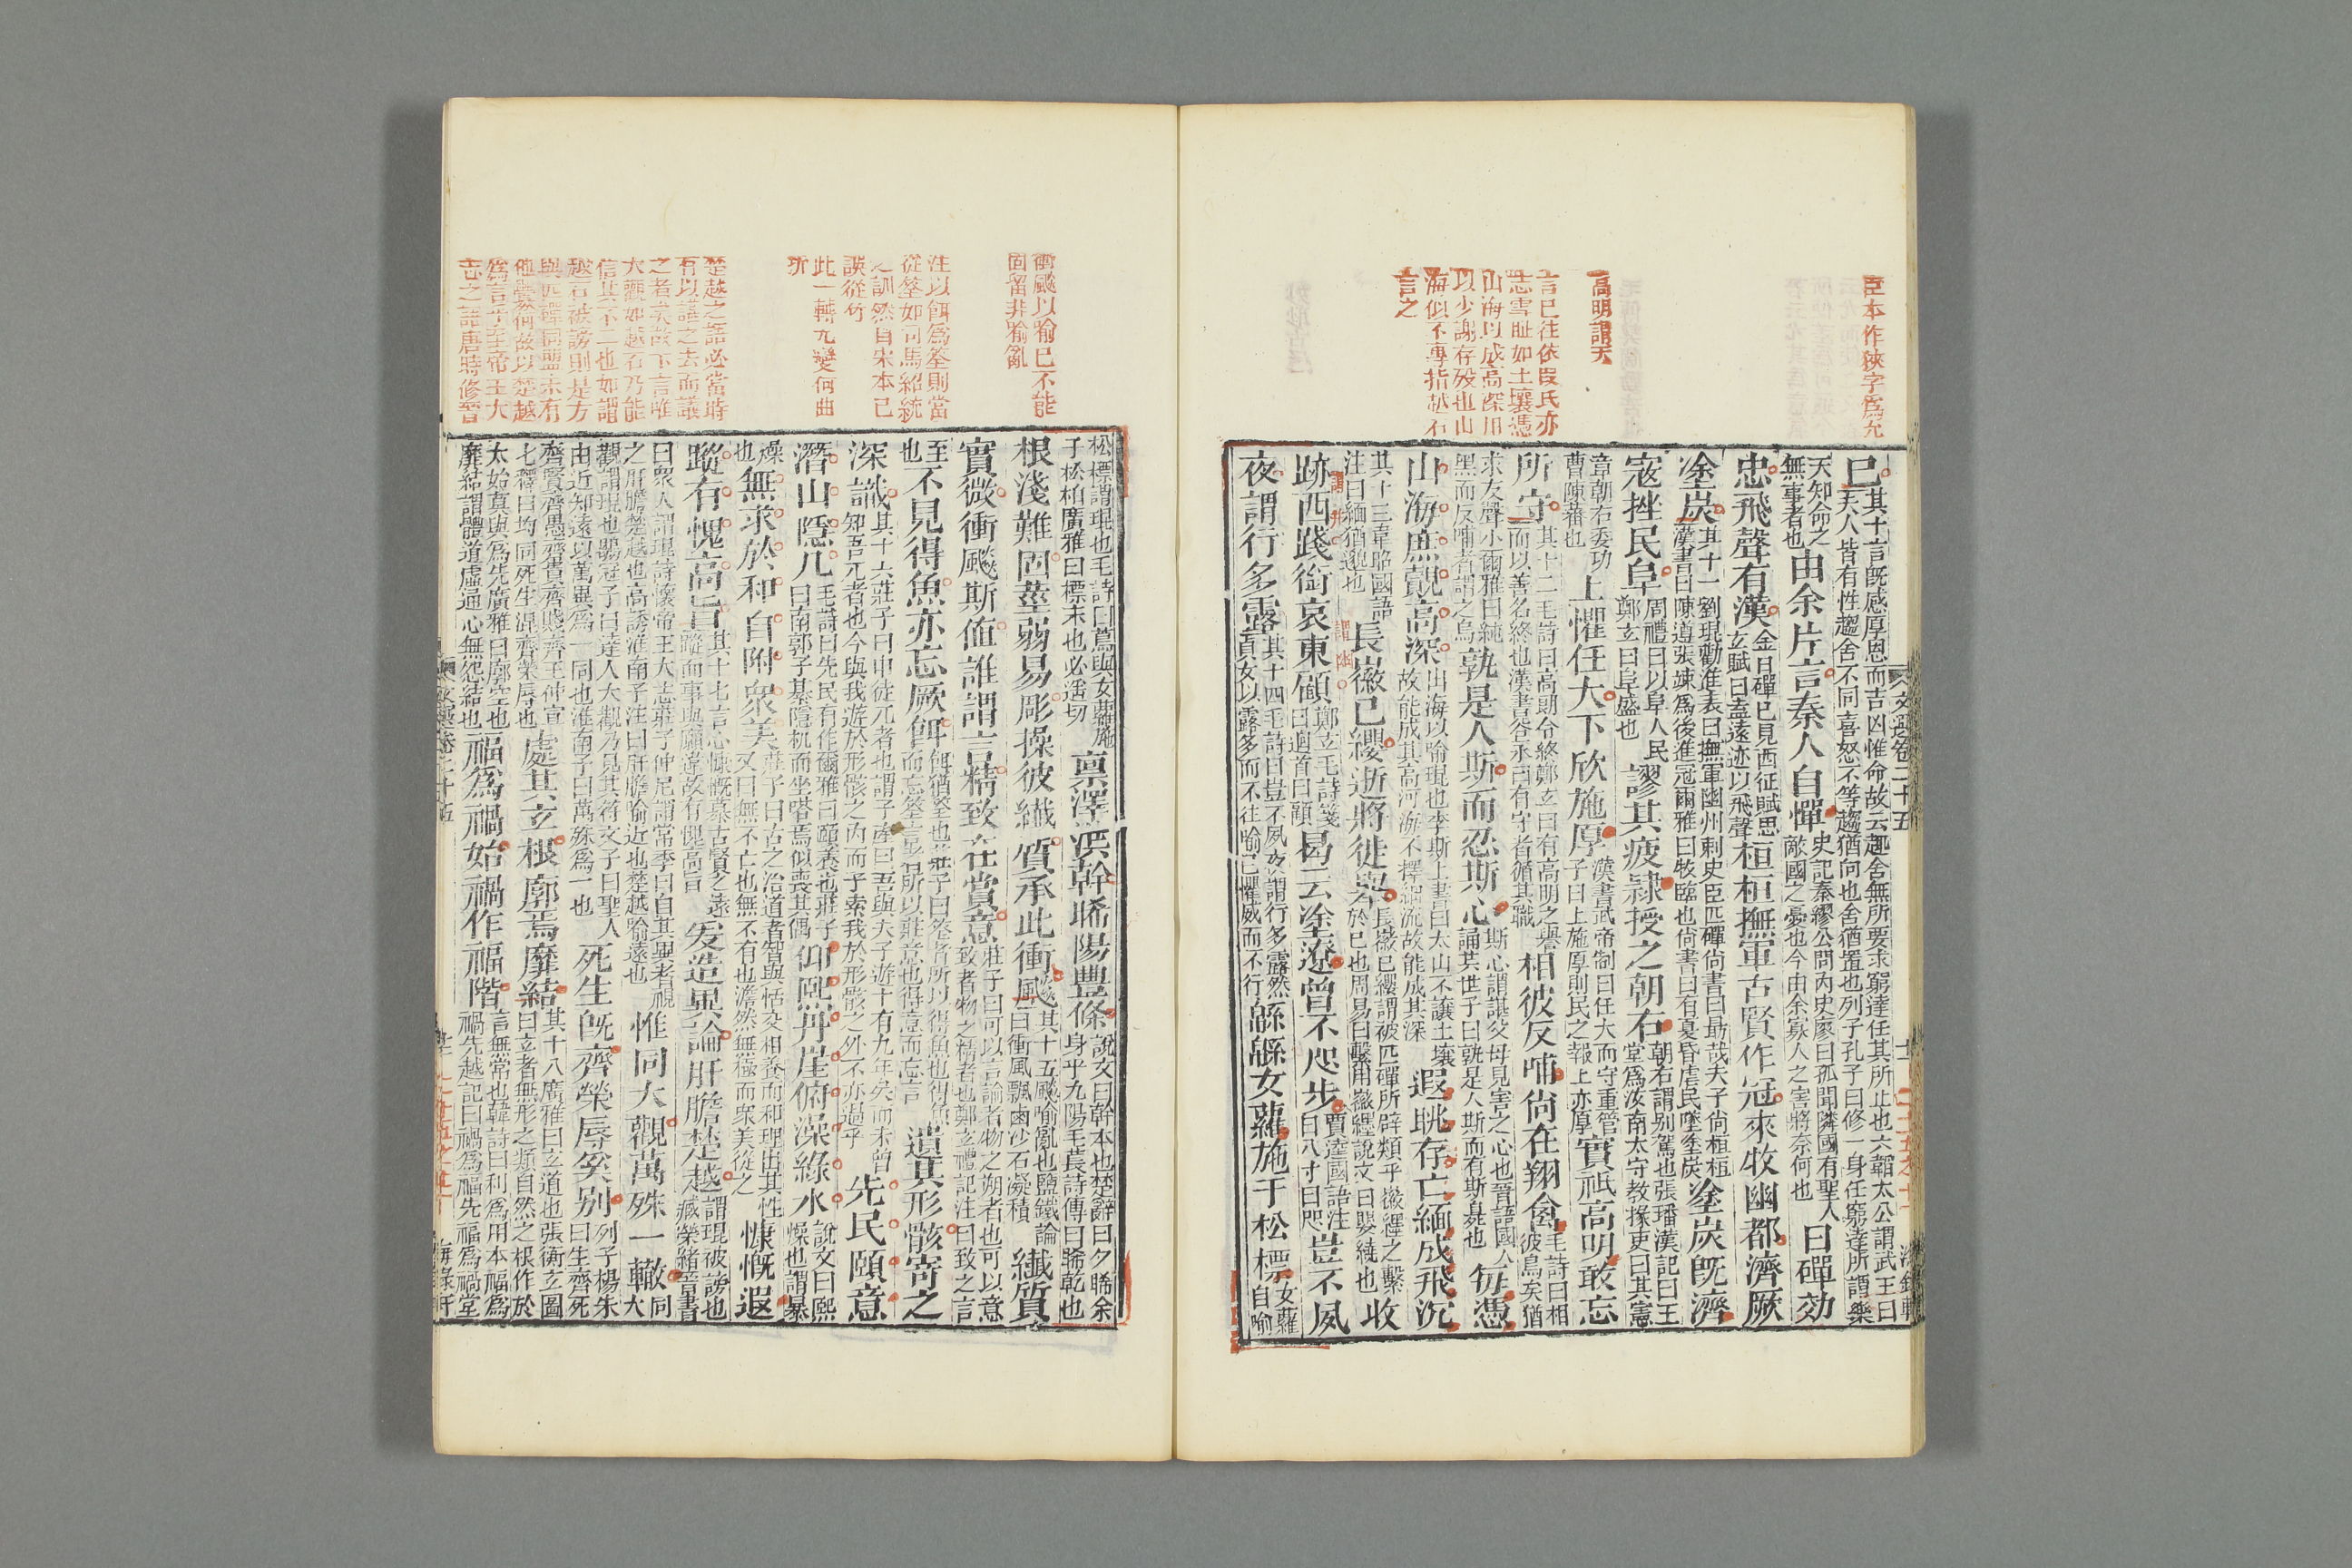 臣本作狹字爲允
高明謂天
言已往依段氏亦
志雪耻如土壤憑
山海以成高深用
以少謝存歿也山
海似不專指越石
言之
文選卷二十五
已其十言旣感厚恩而吉凶惟命故云趣舍無所要求窮達任其所止也六韜太公謂武王曰
夫人皆有性趣舍不同喜怒不等趨猶向也舍猶置也列子孔子曰修一身任窮達所謂樂
天知命之無事者也由余片言秦人自憚史記秦繆公問內史廖曰孤聞隣國有聖人敵國之憂也今由余寡人之害將奈何也日磾効
忠飛聲有漢金日磾已見西征賦思玄賦曰盍遠迹以飛聲桓桓撫軍古賢作冠來牧幽都濟厥
塗炭其十一劉琨勸進表曰撫軍幽州剌史臣匹磾尙書曰勗哉夫子尙桓桓漢書曰陳遵張竦爲後進冠爾雅曰牧臨也尙書曰有夏昏虐民墜塗炭塗炭旣濟
寇挫民阜周禮曰以阜人民鄭玄曰阜盛也謬其疲隷授之朝右朝右謂别駕也張璠漢記曰王堂爲汝南太守教掾吏曰其憲
章朝右委功曹陳蕃也上懼任大下欣施厚漢書武帝制曰任大而守重管子曰上施厚則民之報上亦厚實祇高明敢忘
所守其十二毛詩曰高朗令終鄭玄曰有高明之譽而以善名終也漢書谷永曰有守者循其職相彼反哺尙在翔禽毛詩曰相彼鳥矣猶
求友聲小爾雅曰純黑而反哺者謂之烏孰是人斯而忍斯心斯心謂諶父母見害之心也晉語國人誦共世子曰孰是人斯而有斯臭也每憑
山海庶覿高深山海以喻琨也李斯上書曰太山不讓土壤故能成其高河海不擇細流故能成其深遐眺存亡緬成飛沉
其十三韋昭國語注曰緬猶邈也長徽已纓逝將徙舉長徽已纓謂被匹磾所辟類乎徽纆之繫於已也周易曰繫用徽纆說文曰嬰繞也收
跡西踐銜哀東顧鄭玄毛詩箋曰迴首曰顧曷云塗遼曾不咫步賈逵國語注曰八寸曰咫豈不夙
夜謂行多露其十四毛詩曰豈不夙夜謂行多露然貞女以露多而不往喻已懼威而不行緜緜女蘿施于松標女蘿自喻
衝飈以喻已不能
固留非喻亂
注以餌爲筌則當
從筌如司馬紹統
之訓然自宋本已
誤從竹
此一轉尢變何曲
折
楚越之語必當時
有以語之去而議
之者矣故下言唯
大觀如越石乃能
信其不二也如謂
越石被謗則是方
與匹磾同盟未有
他釁何故以楚越
爲言乎至帝王大
志之語唐時修晉
松標謂琨也毛詩曰蔦與女蘿施子松柏廣雅曰標末也必遙切稟澤洪幹晞陽豐條說文曰幹本也楚辭曰夕晞余身乎九陽毛萇詩傳曰晞乾也
根淺難固莖弱易彫操彼纎質承此衝飈其十五飈喻亂也鹽鐵論曰衝風飄鹵沙石凝積纎質
實微衝飈斯値誰謂言精致在賞意莊子曰可以言論者物之粗者也可以意致者物之精者也鄭玄禮記注曰致之言
至也不見得魚亦忘厥餌餌猶筌也莊子曰筌者所以得魚也得魚而忘筌言者所以在意也得意而忘言遺其形骸寄之
深識其十六莊子曰申徒兀者也謂子產曰吾與夫子遊十有九年矣而未曾知吾兀者也今與我遊於形骸之內而子索我於形骸之外不亦過乎先民頤意
潛山隱几毛詩曰先民有作爾雅曰頤養也莊子曰南郭子綦隱机而坐嗒焉似喪其偶仰熙丹崖俯澡綠水說文曰熙燥也謂暴
燥也無求於和自附衆美莊子曰古之治道者智與恬交相養而和理出其性又曰無不亡也無不有也澹然無極而衆美從之慷慨遐
蹤有愧高旨其十七言心慷慨慕古賢之遠蹤而事與願違故有愧高旨爰造異論肝膽楚越謂琨被謗也臧榮緒晉書
曰衆人謂琨詩懷帝王大志莊子仲尼謂常季曰自其異者視之肝膽楚越也高誘淮南子注曰肝膽喻近也楚越喻遠也惟同大觀萬殊一轍大同
觀謂琨也鶡冠子曰達人大觀乃見其符文子曰聖人由近知遠以萬異爲一同也淮南子曰萬殊爲一也死生旣齊榮辱奚别列子楊朱曰生齊死
齊賢齊愚齊貴齊賤齊王仲宣七釋曰均同死生混齊榮辱也處其玄根廓焉靡結其十八廣雅曰玄道也張衡玄圖曰玄者無形之類自然之根作於
太始莫與爲先廣雅曰廓空也靡結謂體道虛通心無怨結也福爲禍始禍作福階言無常也韓詩曰利爲用本福爲禍先越記曰禍爲福先福爲禍堂